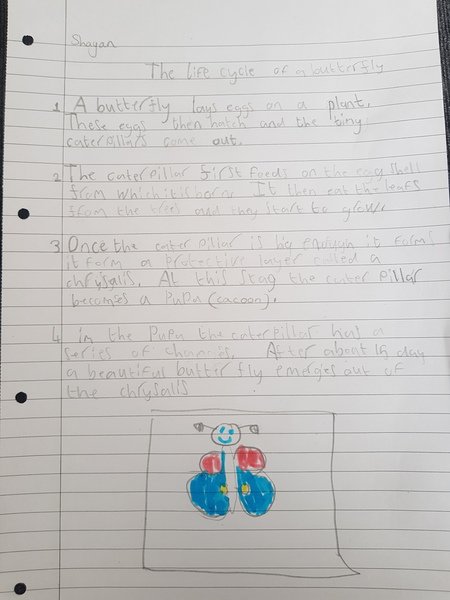 Shayan
The life cycle of a butterfly
1 A butterfly lays eggs on a plant.
These eggs then hatch and the tiny
caterpillars come out.
2 The caterpillar first feeds on the egg shell
from which it is born. It then eat the leafs
from the trees and they start to grow.
3 Once the caterpillar is big enough it forms
it form a protective layer called a
chrysalis. At this stag the caterpillar
becomes a pupa (cacoon).
4 in the Pupa the caterpillar has a
series of changes. After about 15 day
a beautiful butterfly emerges out of
the chrysalis